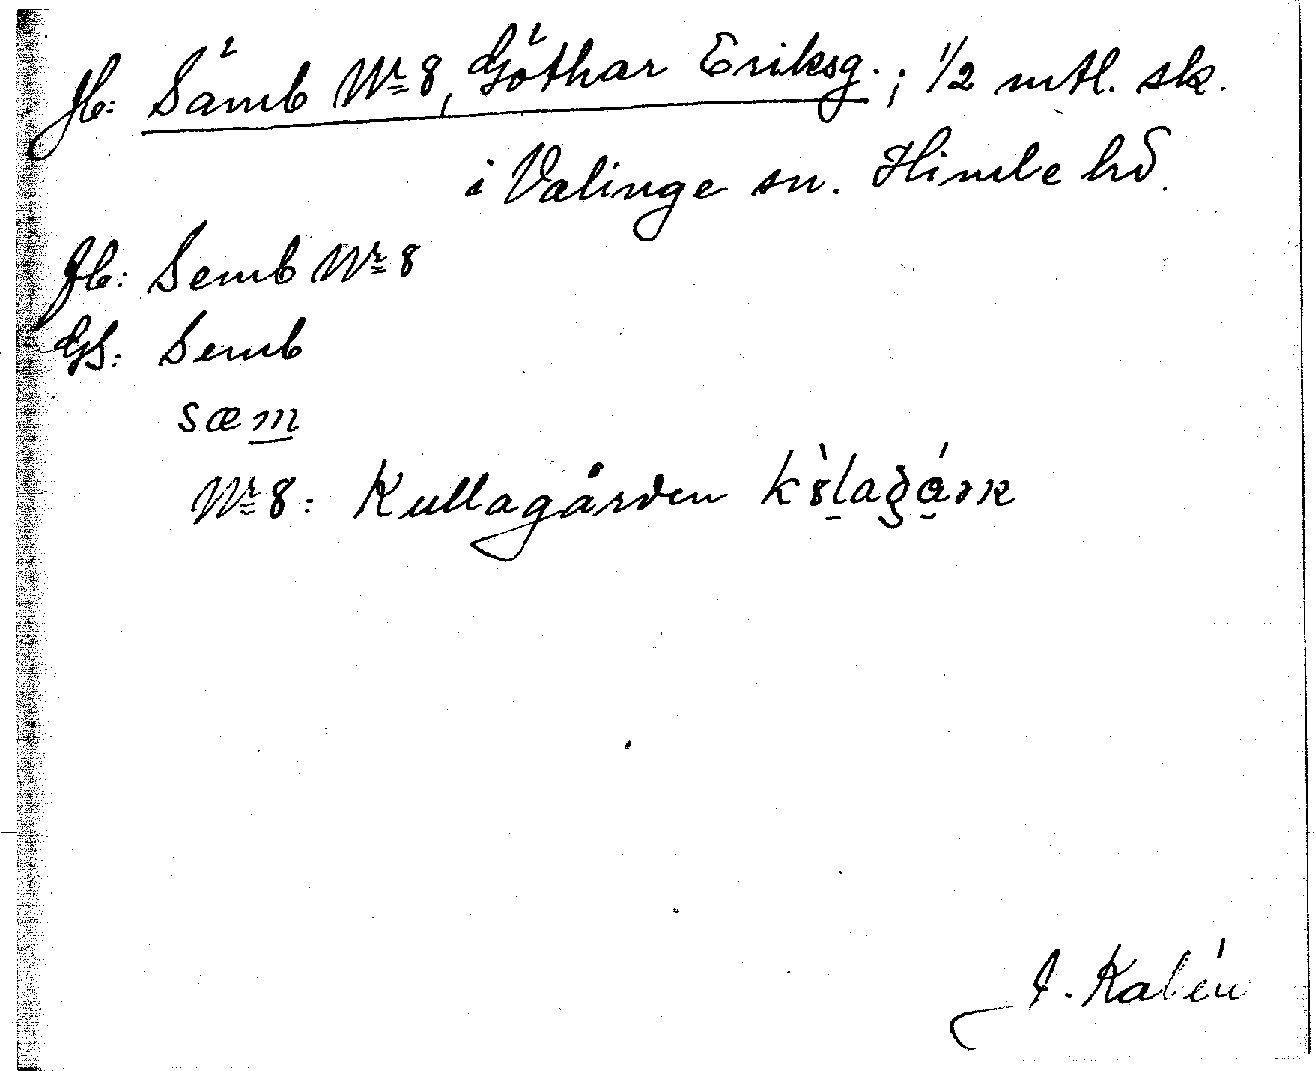 Jb: Sämb Nr 8, Göthar Eriksg.; 1/2 mtl. sk.
i Valinge sn. Himle hd.
Jb: Semb Nr 8
GS: Semb
sæm
Nr 8: Kullagården
J. Kalén